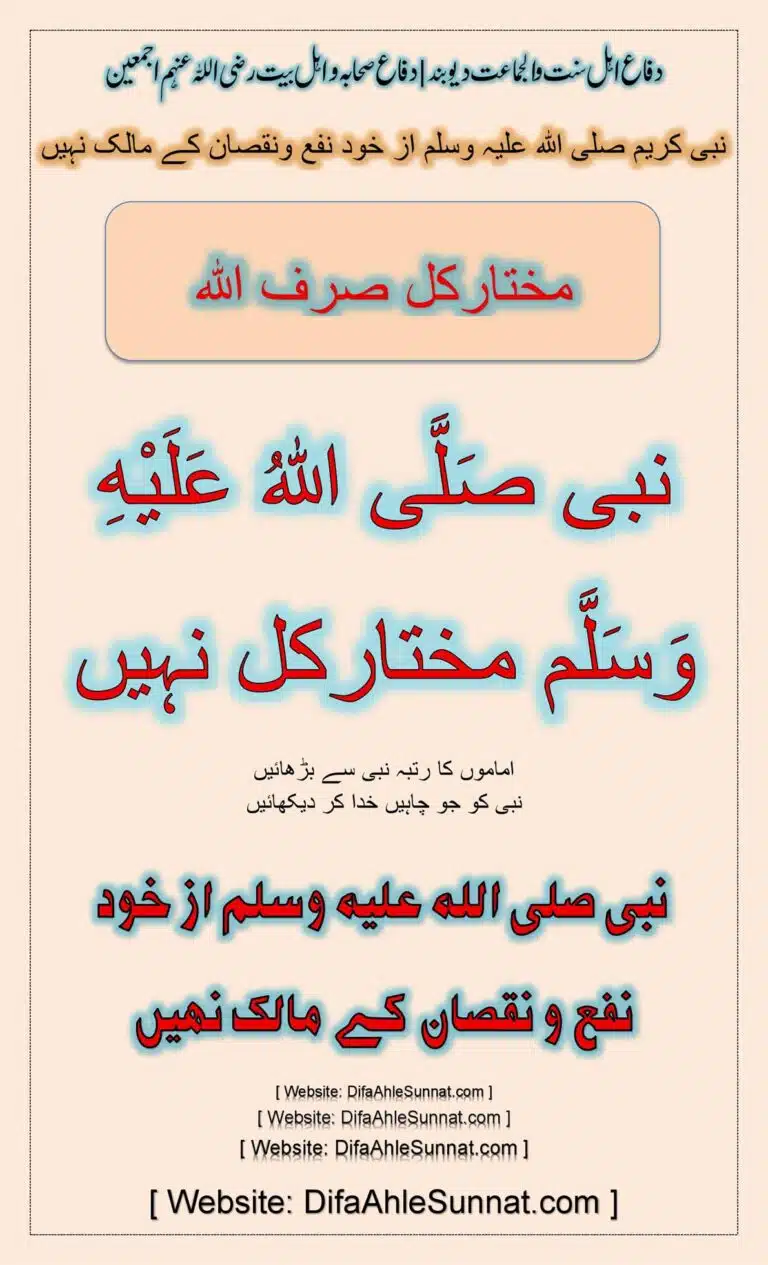 دفاع اہل سنت والجماعت دیوبند | دفاع صحابہ و اہل بیت رضی اللہ عنہم اجمعین
نبی کریم صلی اللہ علیہ وسلم از خود نفع ونقصان کے مالک نہیں
مختارکل صرف اللہ
نبی صَلَّی اللہُ عَلَیْہِ
وَسَلَّم مختارکل نہیں
اماموں کا رتبہ نبی سے بڑھائیں
نبی کو جو چاہیں خدا کر دیکھائیں
نبی صلی اللہ علیہ وسلم از خود
نفع و نقصان کے مالک نھیں
[ Website: DifaAhleSunnat.com ]
[ Website: DifaAhleSunnat.com ]
[ Website: DifaAhleSunnat.com ]
[ Website: DifaAhleSunnat.com ]